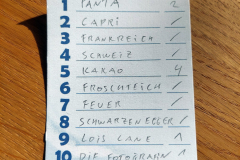 1 FANTA 2
2 CAPRI /
3 FRANKREICH /
4 SCHWEIZ /
5 KAKAO 4
6 FROSCHTEICH /
7 FEUER /
8 SCHWARZENEGGER /
9 LOIS LANE 1
10 DIE FOTOGRAFIN 1